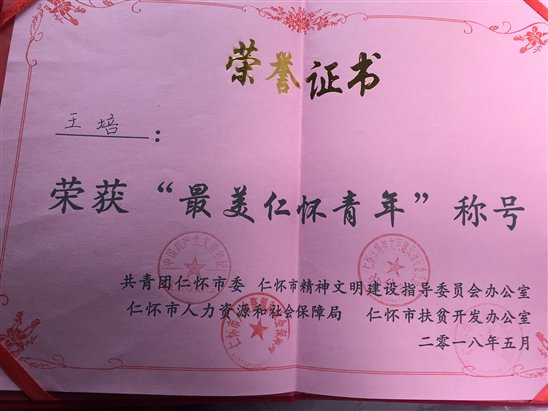 荣誉证书
王培：
荣获“最美仁怀青年”称号
共青团仁怀市委 仁怀市精神文明建设指导委员会办公室
仁怀市人力资源和社会保障局 仁怀市扶贫开发办公室
二零一八年五月